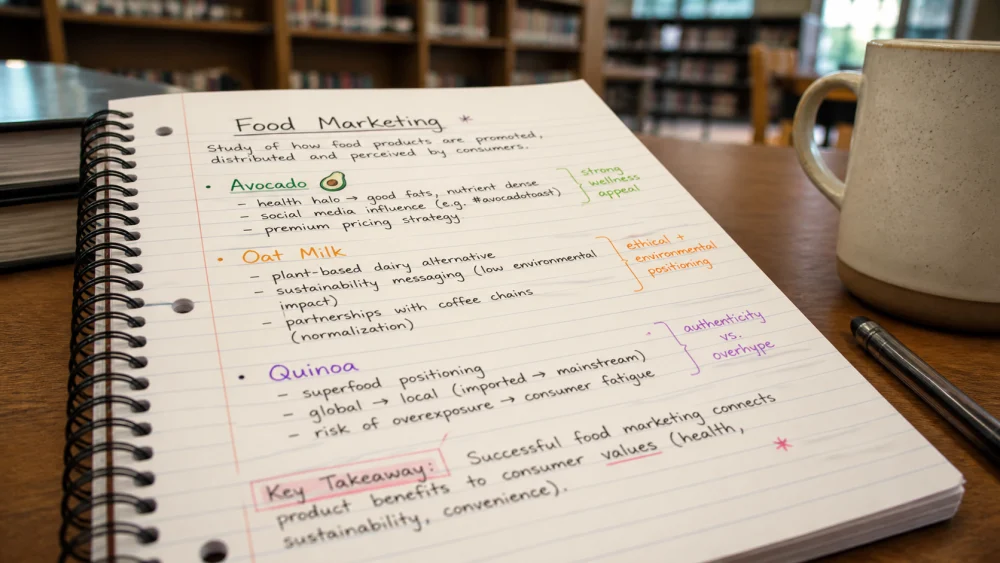 Food Marketing *
Study of how food products are promoted,
distributed and perceived by consumers.
• Avocado
– health halo → good fats, nutrient dense
– social media influence (e.g. #avocadotoast)
– premium pricing strategy
strong
wellness
appeal
• Oat Milk
– plant-based dairy alternative
– sustainability messaging (low environmental
impact)
– partnerships with coffee chains
(normalization)
ethical +
environmental
positioning
• Quinoa
– superfood positioning
– global → local (imported → mainstream)
– risk of overexposure → consumer fatigue
authenticity
vs.
overhype
Key Takeaway: Successful food marketing connects
product benefits to consumer values (health,
sustainability, convenience). *